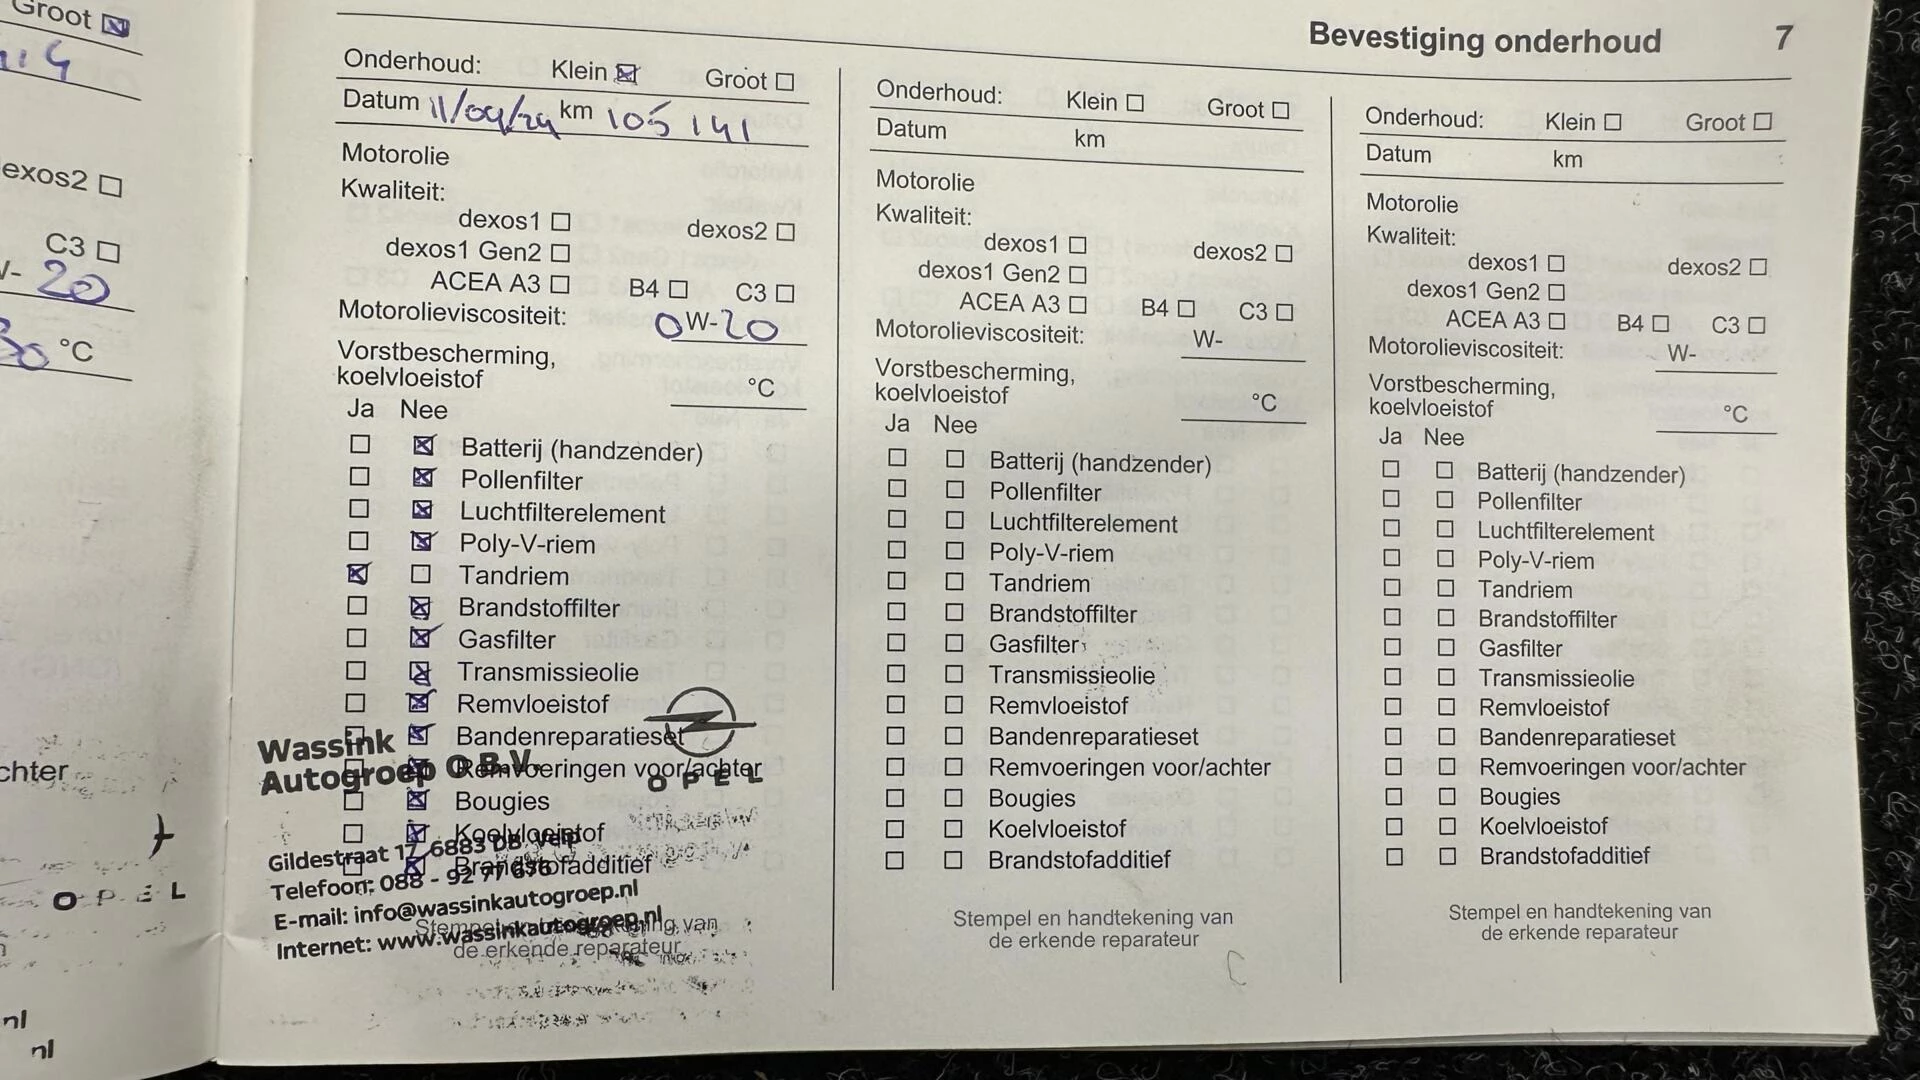 Groot
exos2
C3
W- 20
30 °C
chter
OPEL
nl
nl
Bevestiging onderhoud 7
Onderhoud: Klein Groot
Datum 11/09/24 km 105 141
Motorolie
Kwaliteit:
dexos1 dexos2
dexos1 Gen2
ACEA A3 B4 C3
Motorolieviscositeit: 0W-20
Vorstbescherming,
koelvloeistof °C
Ja Nee
Batterij (handzender)
Pollenfilter
Luchtfilterelement
Poly-V-riem
Tandriem
Brandstoffilter
Gasfilter
Transmissieolie
Remvloeistof
Bandenreparatieset
Remvoeringen voor/achter
Bougies
Koelvloeistof
Brandstofadditief
Stempel en handtekening van
de erkende reparateur
Wassink
Autogroep O B.V.
OPEL
Gildestraat 17, 6883 DB Velp
Telefoon: 088 - 92 77 676
E-mail: info@wassinkautogroep.nl
Internet: www.wassinkautogroep.nl
Onderhoud: Klein Groot
Datum km
Motorolie
Kwaliteit:
dexos1 dexos2
dexos1 Gen2
ACEA A3 B4 C3
Motorolieviscositeit: W-
Vorstbescherming,
koelvloeistof °C
Ja Nee
Batterij (handzender)
Pollenfilter
Luchtfilterelement
Poly-V-riem
Tandriem
Brandstoffilter
Gasfilter
Transmissieolie
Remvloeistof
Bandenreparatieset
Remvoeringen voor/achter
Bougies
Koelvloeistof
Brandstofadditief
Stempel en handtekening van
de erkende reparateur
Onderhoud: Klein Groot
Datum km
Motorolie
Kwaliteit:
dexos1 dexos2
dexos1 Gen2
ACEA A3 B4 C3
Motorolieviscositeit: W-
Vorstbescherming,
koelvloeistof °C
Ja Nee
Batterij (handzender)
Pollenfilter
Luchtfilterelement
Poly-V-riem
Tandriem
Brandstoffilter
Gasfilter
Transmissieolie
Remvloeistof
Bandenreparatieset
Remvoeringen voor/achter
Bougies
Koelvloeistof
Brandstofadditief
Stempel en handtekening van
de erkende reparateur